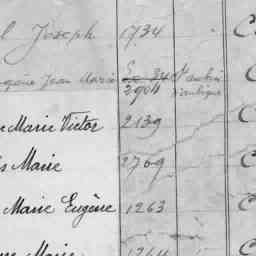 l Joseph 1734 C
Jean Marie 34 St Aubin
2904
Marie Victor 2139 C
s Marie 2769 C
Marie Eugène 1263 C
Marie 1264 C